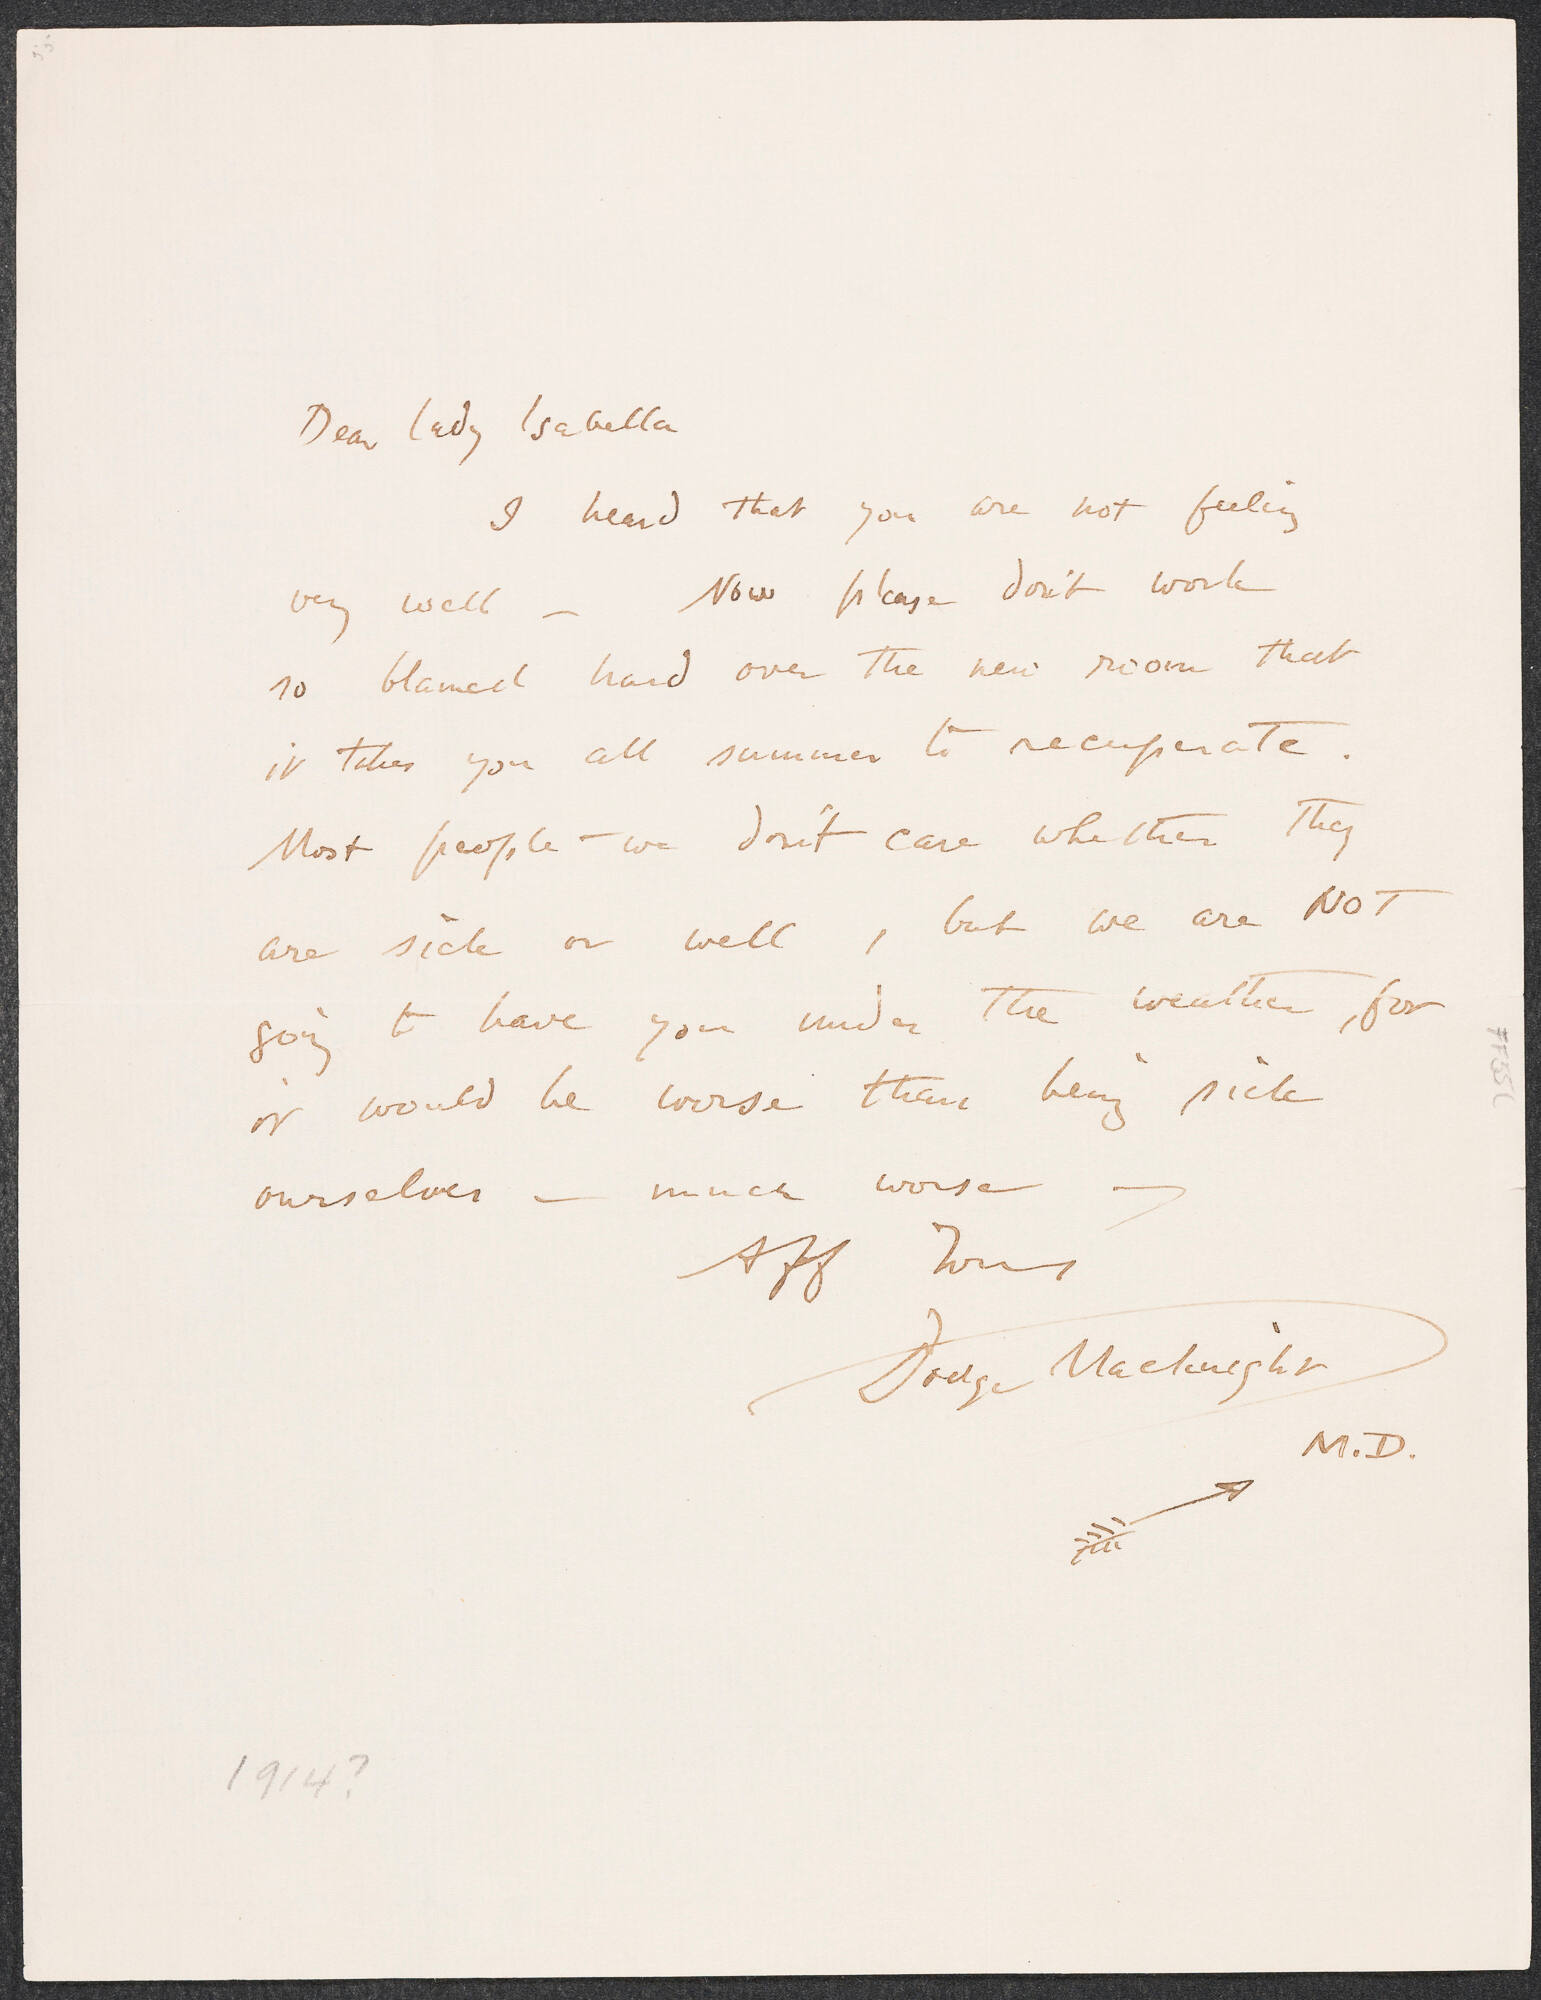 Dear Lady Isabella
I heard that you are not feeling
very well — Now please don't work
so blamed hard over the new room that
it takes you all summer to recuperate.
Most people — we don't care whether they
are sick or well, but we are NOT
going to have you under the weather, for
it would be worse than being sick
ourselves — much worse —
Aff Yours
Dodge Macknight
M.D.
1914?